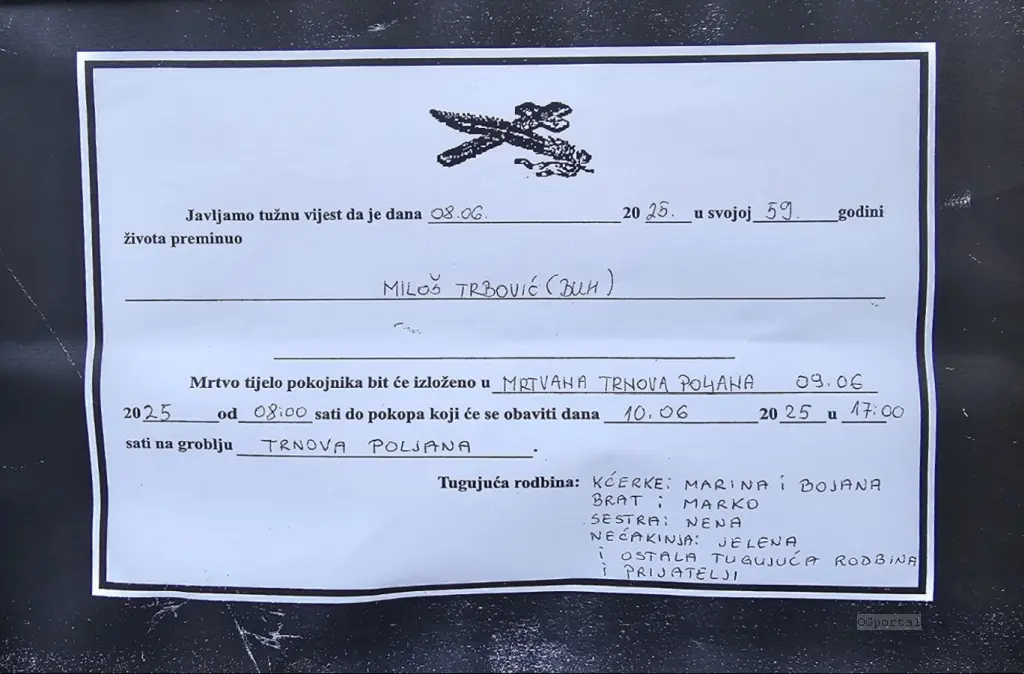 Javljamo tužnu vijest da je dana 08.06. 20 25. u svojoj 59. godini
života preminuo
MILOŠ TRBOVIĆ (BUH)
Mrtvo tijelo pokojnika bit će izloženo u MRTVANA TRNOVA POLJANA 09.06
2025 od 08:00 sati do pokopa koji će se obaviti dana 10.06 20 25 u 17:00
sati na groblju TRNOVA POLJANA.
Tugujuća rodbina: KĆERKE: MARINA i BOJANA
BRAT i MARKO
SESTRA: NENA
NEĆAKINJA: JELENA
i OSTALA TUGUJUĆA RODBINA
i PRIJATELJI
OGportal